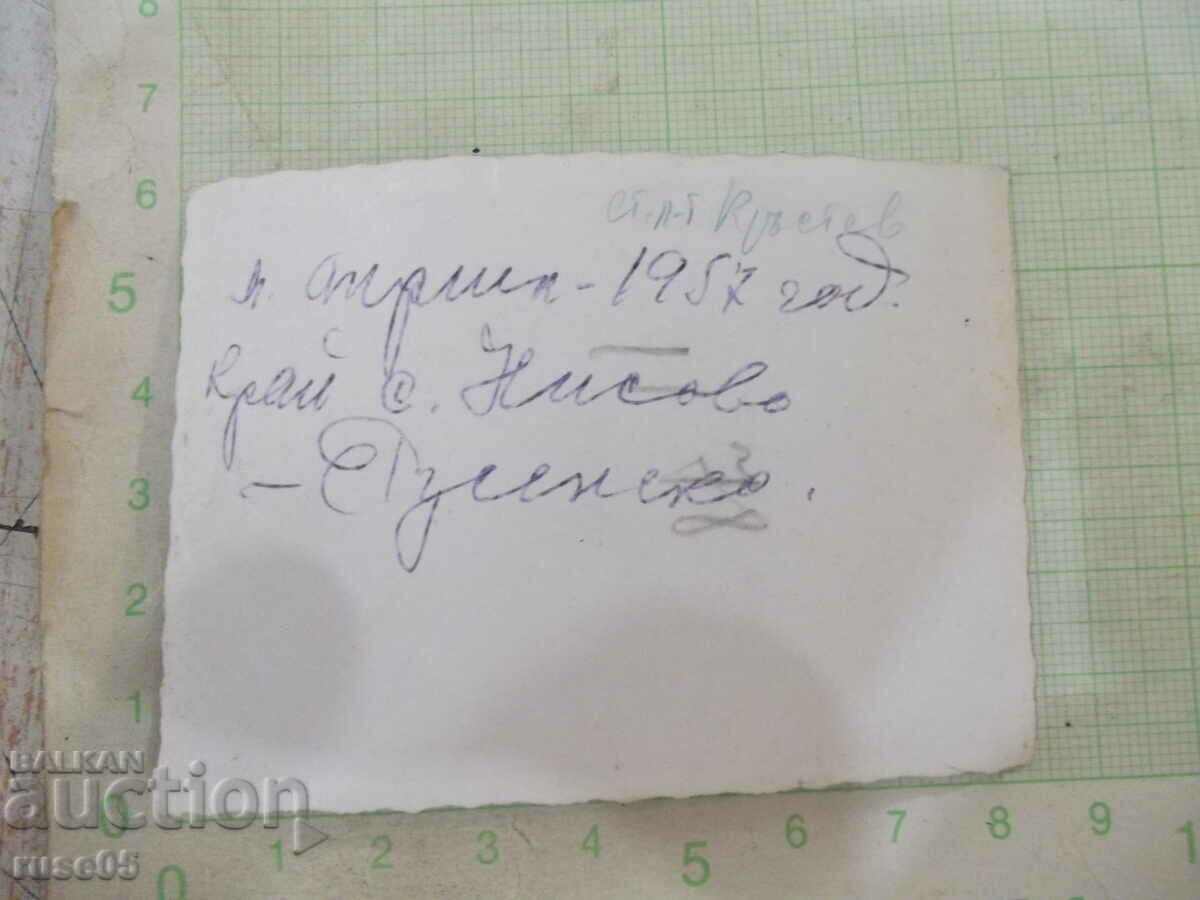 ст. л-т Кръстев
м. Април - 1957 год.
край с. Нисово
- Русенско.
8
7
6
5
4
3
2
1
0
0
1
2
3
4
5
6
7
8
9
1
BALKAN
auction
ruse05